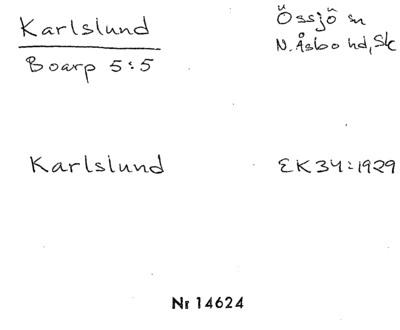 Karlslund
Össjö sn
N. Åsbo hd, Sk
Boarp 5:5
Karlslund
EK34:1929
Nr 14624